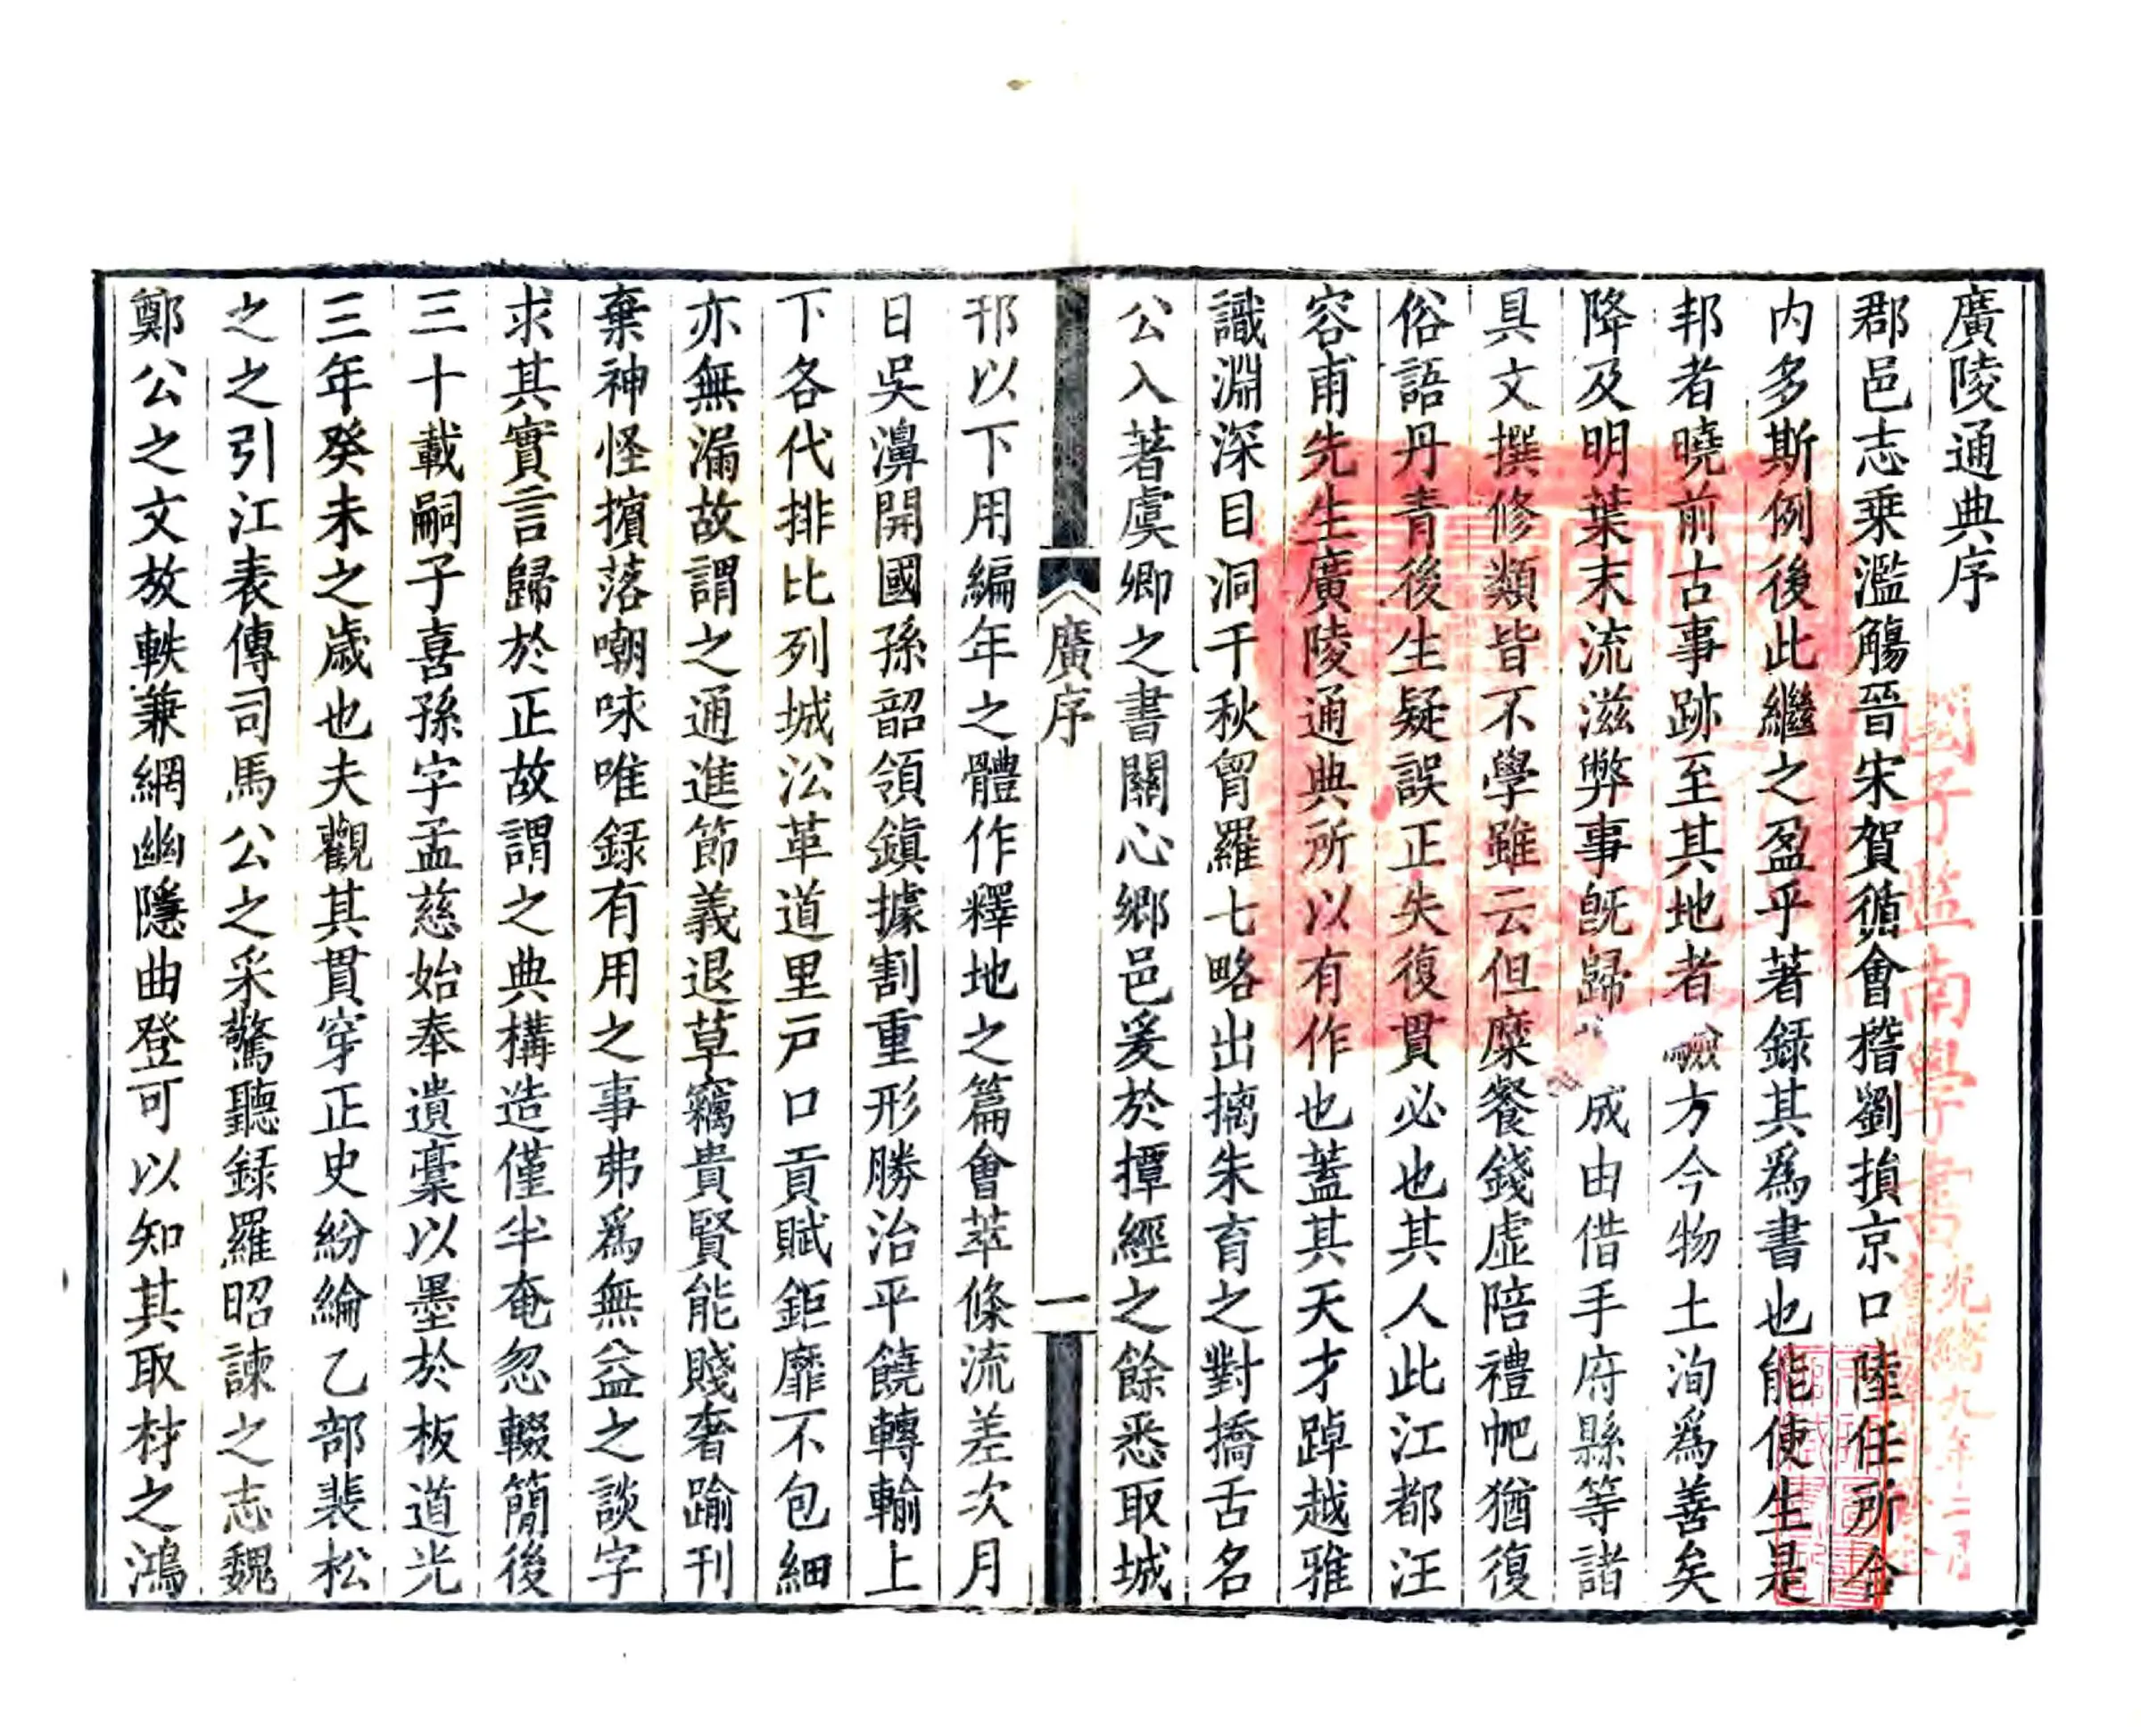 廣陵通典序
郡邑志乘濫觴晉宋賀循會稽劉損京口陸任所合
内多斯例後此繼之盈乎著録其爲書也能使生是
邦者曉前古事跡至其地者驗方今物土洵爲善矣
降及明葉末流滋弊事旣歸成由借手府縣等諸
具文撰修類皆不學雖云但糜餐錢虚陪禮帊猶復
俗語丹青後生疑誤正失復貫必也其人此江都汪
容甫先生廣陵通典所以有作也蓋其天才踔越雅
識淵深目洞千秋胷羅七略出摛朱育之對撟舌名
公入著虞卿之書關心鄉邑爰於撢經之餘悉取城
廣序
一
邗以下用編年之體作釋地之篇會萃條流差次月
日吳濞開國孫韶領鎮據割重形勝治平饒轉輸上
下各代排比列城㳂革道里戸口貢賦鉅靡不包細
亦無漏故謂之通進節義退草竊貴賢能賤奢踰刊
棄神怪擯落嘲咏唯録有用之事弗爲無益之談字
求其實言歸於正故謂之典構造僅半奄忽輟簡後
三十載嗣子喜孫字孟慈始奉遺稾以墨於板道光
三年癸未之歲也夫觀其貫穿正史紛綸乙部裴松
之之引江表傳司馬公之采驚聽録羅昭諫之志魏
鄭公之文放軼兼網幽隱曲登可以知其取材之鴻
國子監南學書
光緒九年二月